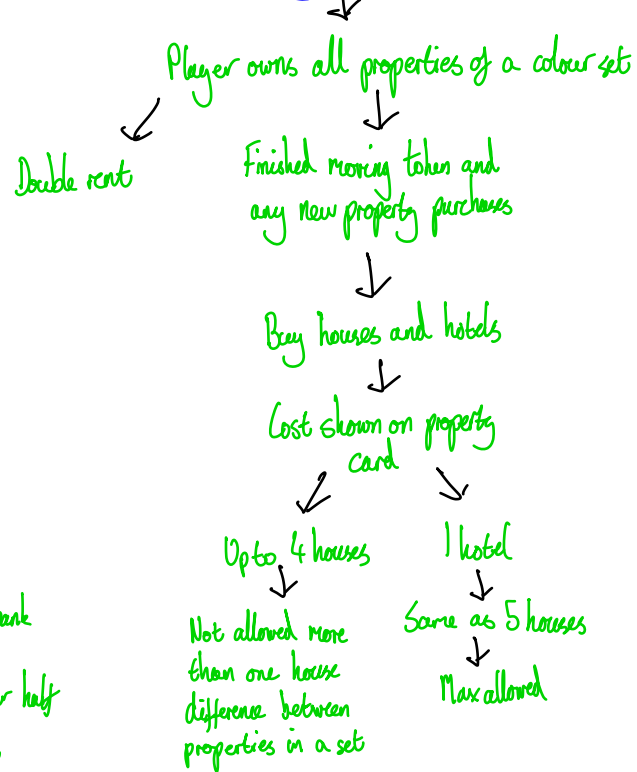 Player owns all properties of a colour set
Double rent
Finished moving token and
any new property purchases
Buy houses and hotels
Cost shown on property
card
Up to 4 houses
1 hotel
Not allowed more
than one house
difference between
properties in a set
Same as 5 houses
Max allowed
half